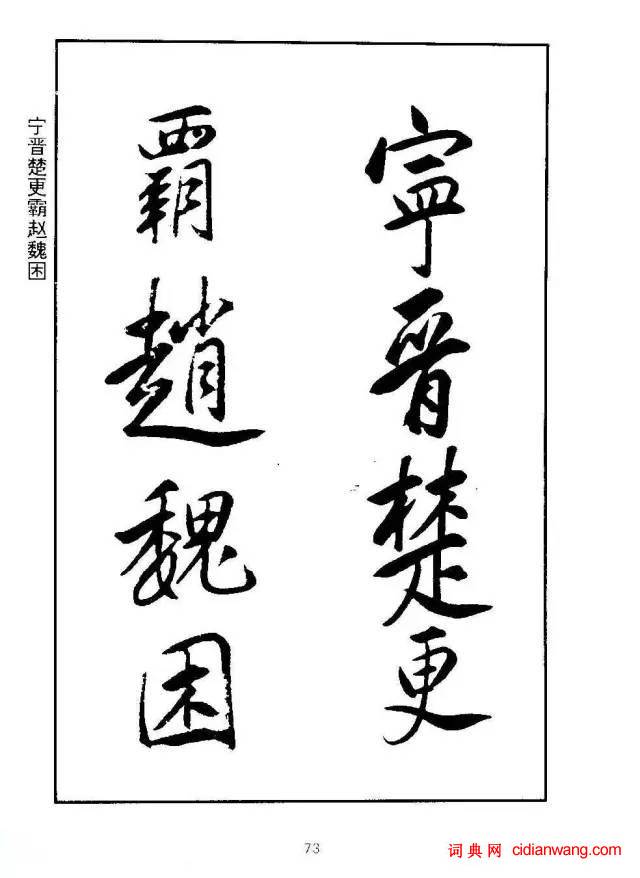 寧晋楚更
覇趙魏困
宁晋楚更霸赵魏困
73
词典网 cidianwang.com